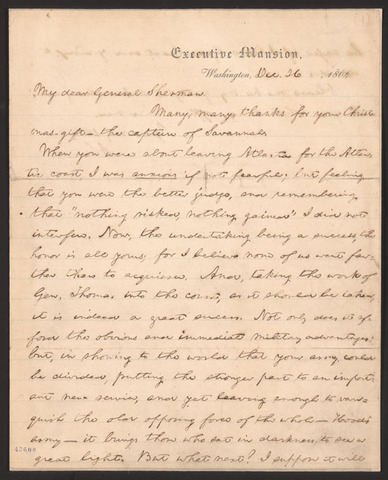 Executive Mansion,
Washington, Dec. 26, 1864.
My dear General Sherman.
Many, many, thanks for your Christ-
mas-gift — the capture of Savannah.
When you were about leaving Atlanta for the Atlan-
tic coast, I was anxious, if not fearful; but feeling
that you were the better judge, and remembering
that "nothing risked, nothing gained" I did not
interfere. Now, the undertaking being a success, the
honor is all yours; for I believe none of us went far-
ther than to acquiesce. And, taking the work of
Gen. Thomas into the count, as it should be taken,
it is indeed a great success. Not only does it af-
ford the obvious and immediate military advantages;
but, in showing to the world that your army could
be divided, putting the stronger part to an import-
ant new service, and yet leaving enough to van-
quish the old opposing force of the whole — Hood's
army — it brings those who sat in darkness, to see a
great light. But what next? I suppose it will